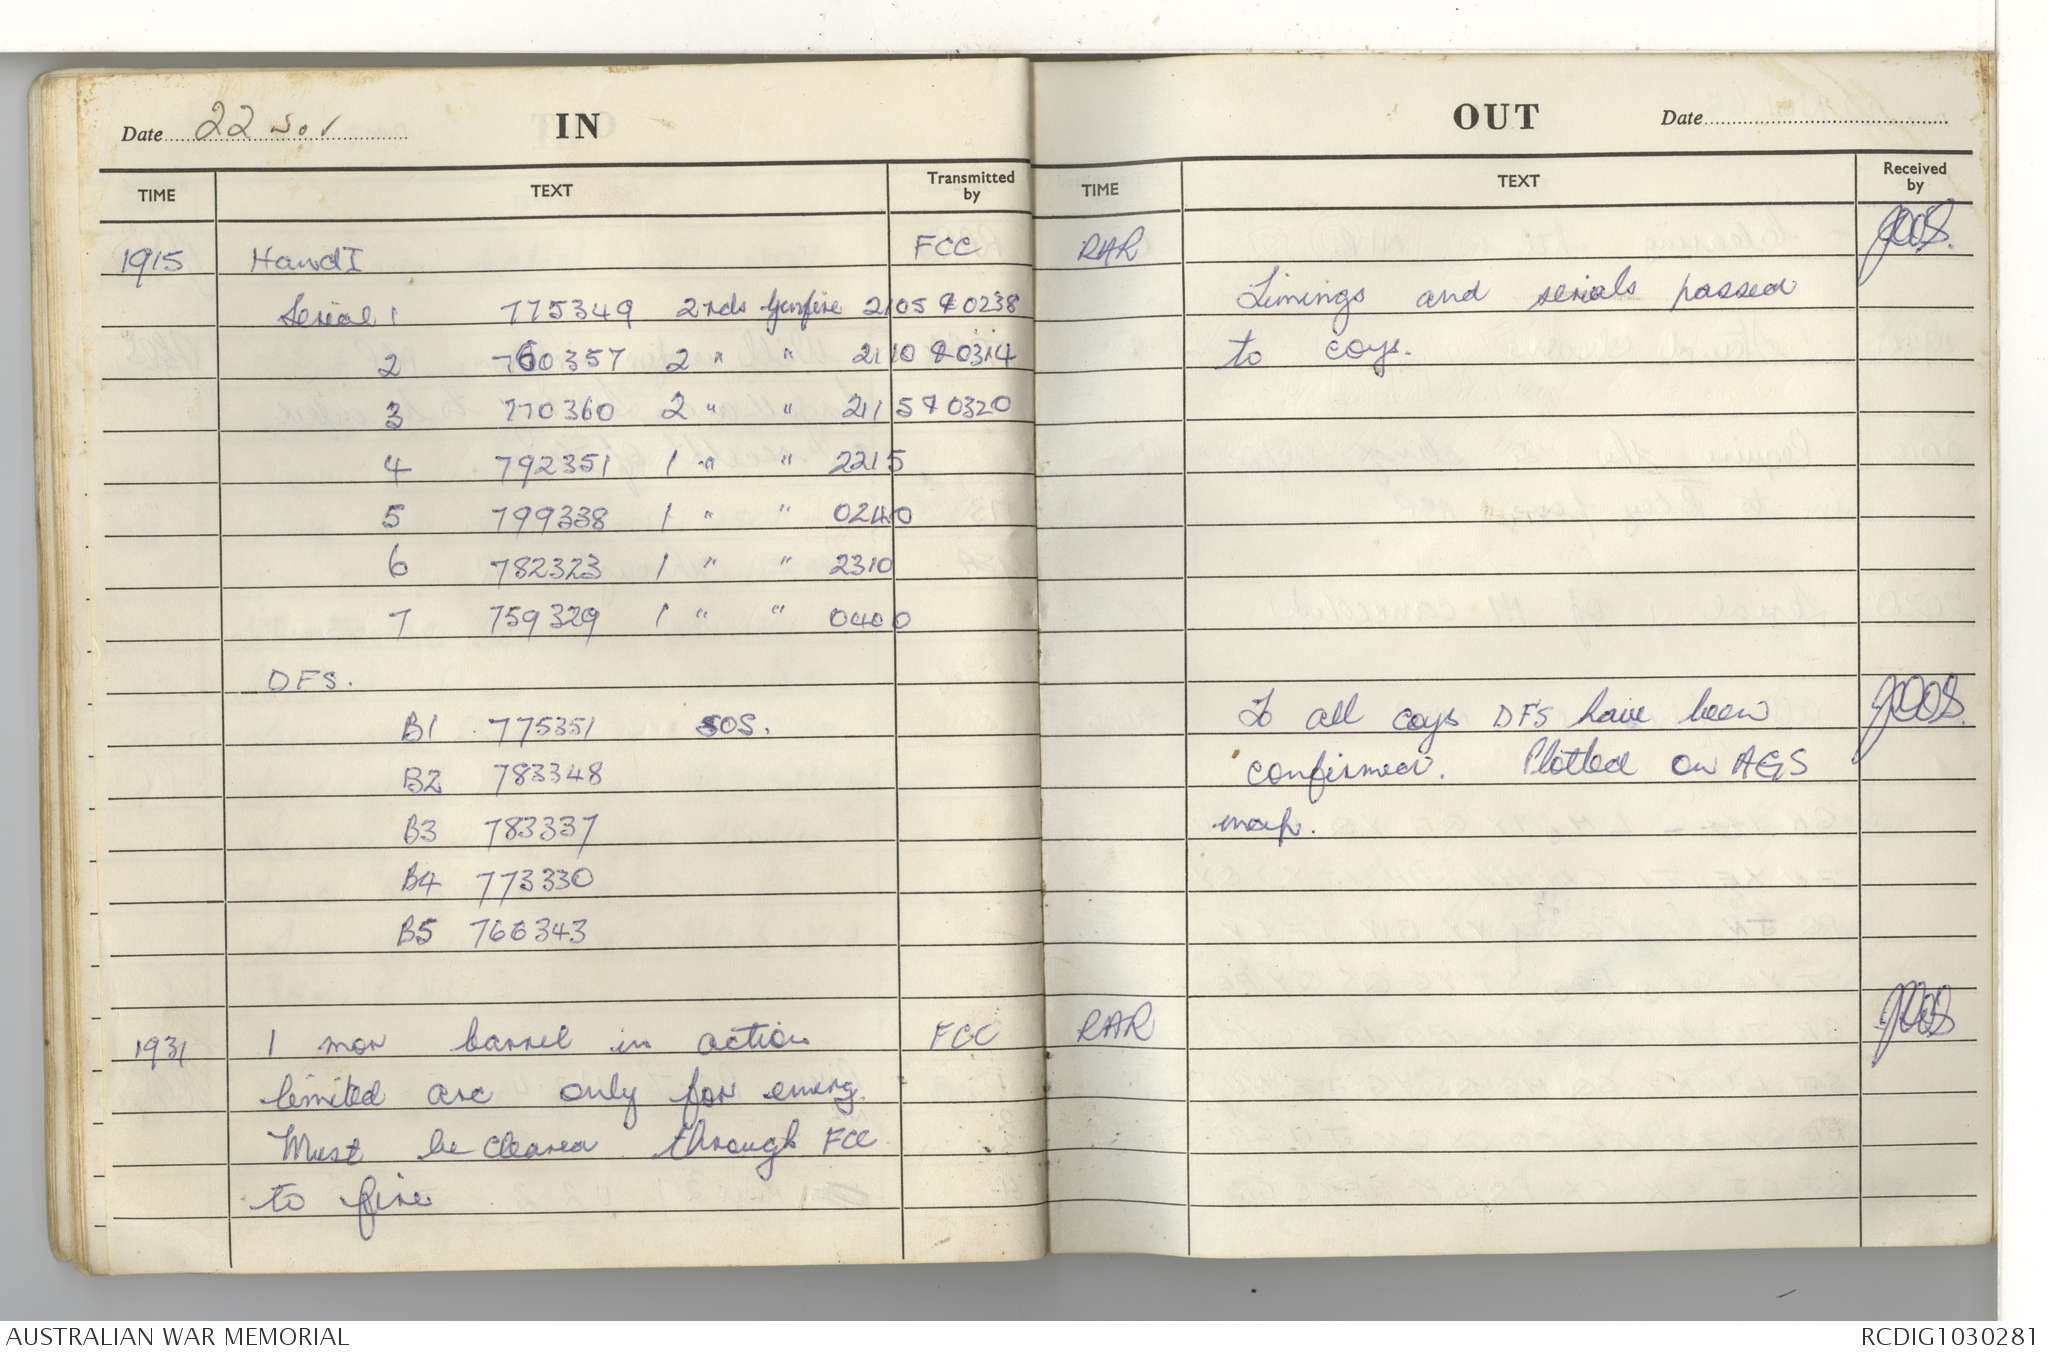 Date 22 Nov
IN
TIME TEXT Transmitted by
1915 HandI FCC
Serial 1 775349 2 rds Gunfire 2105 & 0238
2 760357 2 " " 2110 & 0314
3 770360 2 " " 2115 & 0320
4 792351 1 " " 2215
5 799338 1 " " 0240
6 782323 1 " " 2310
7 759329 1 " " 0400
DFS.
B1 775351 SOS.
B2 783348
B3 783337
B4 773330
B5 766343
1931 1 mor barrel in action FCC
limited arc only for emerg.
Must be cleared through FCC
to fire
OUT
Date
TIME TEXT Received by
RAR
Timings and serials passed
to coys.
To all coys DFS have been
confirmed. Plotted on AGS
map.
RAR
AUSTRALIAN WAR MEMORIAL
RCDIG1030281